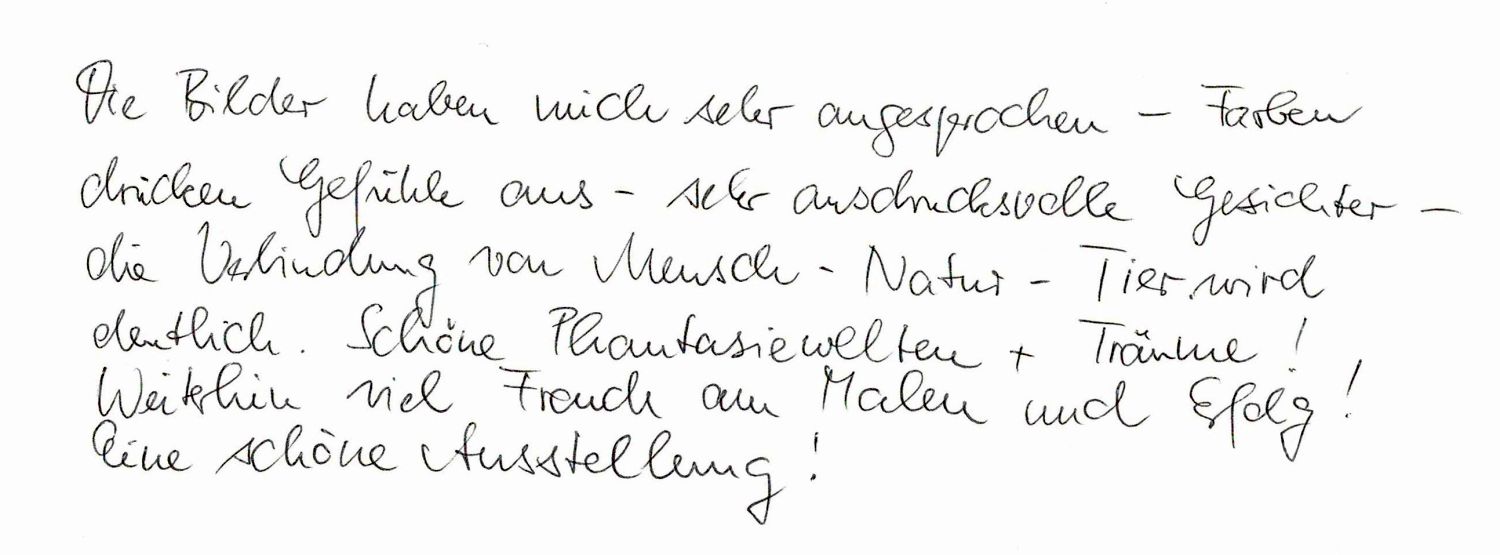 Die Bilder haben mich sehr angesprochen – Farben
drücken Gefühle aus – sehr ausdrucksvolle Gesichter –
die Verbindung von Mensch - Natur - Tier wird
deutlich. Schöne Phantasiewelten + Träume!
Weiterhin viel Freude am Malen und Erfolg!
Eine schöne Ausstellung!